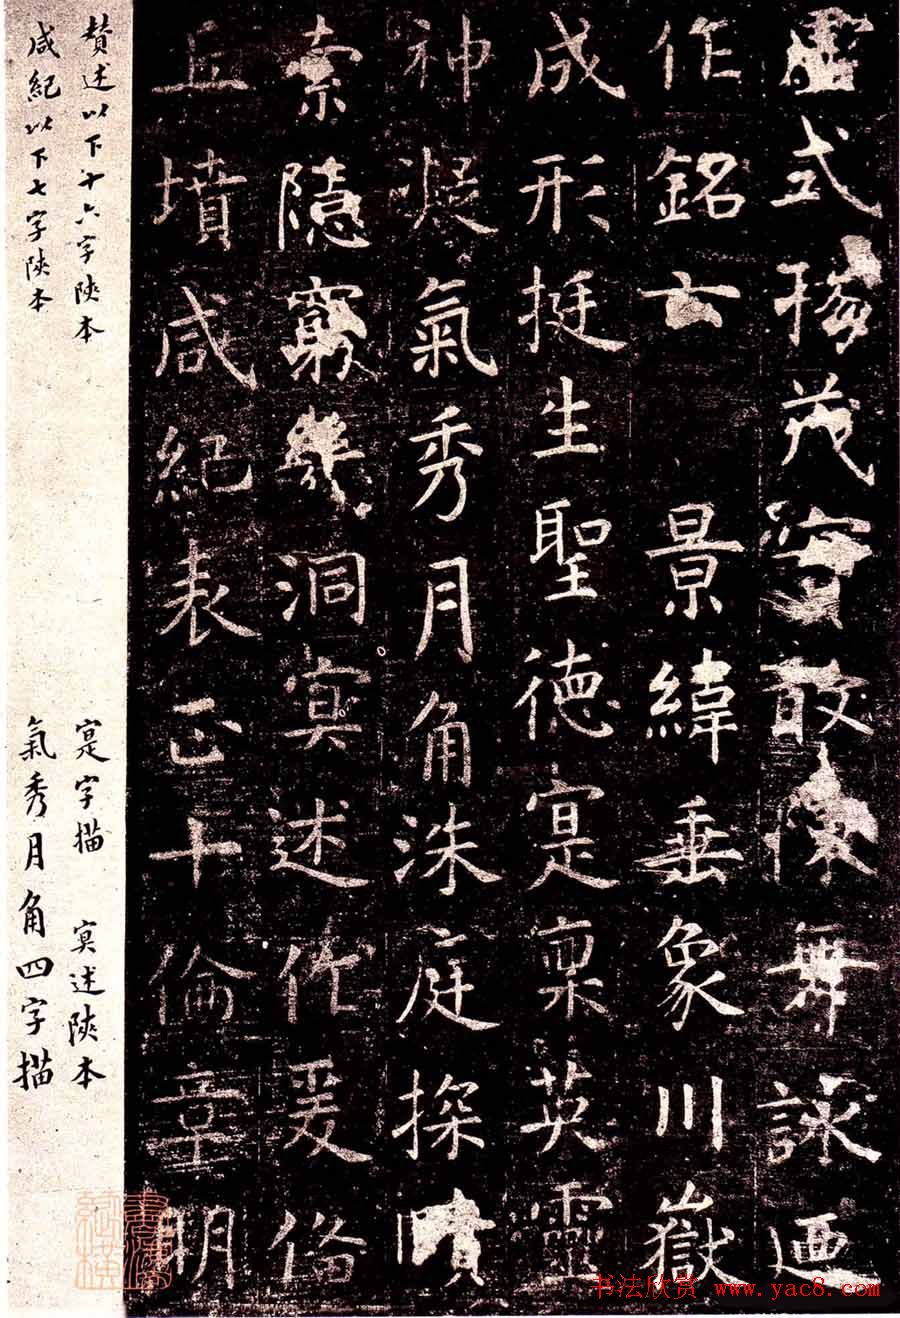 虛式揚茂實敢陳舞詠迺
作銘云景緯垂象川嶽
成形挺生聖德寔稟英靈
神凝氣秀月角珠庭探賾
索隱窮幾洞冥述作爰俻
丘墳咸紀表正十倫章明
贊述以下十六字陝本
咸紀以下七字陝本
寔字描 冥述陝本
氣秀月角四字描
书法欣赏 www.yac8.com